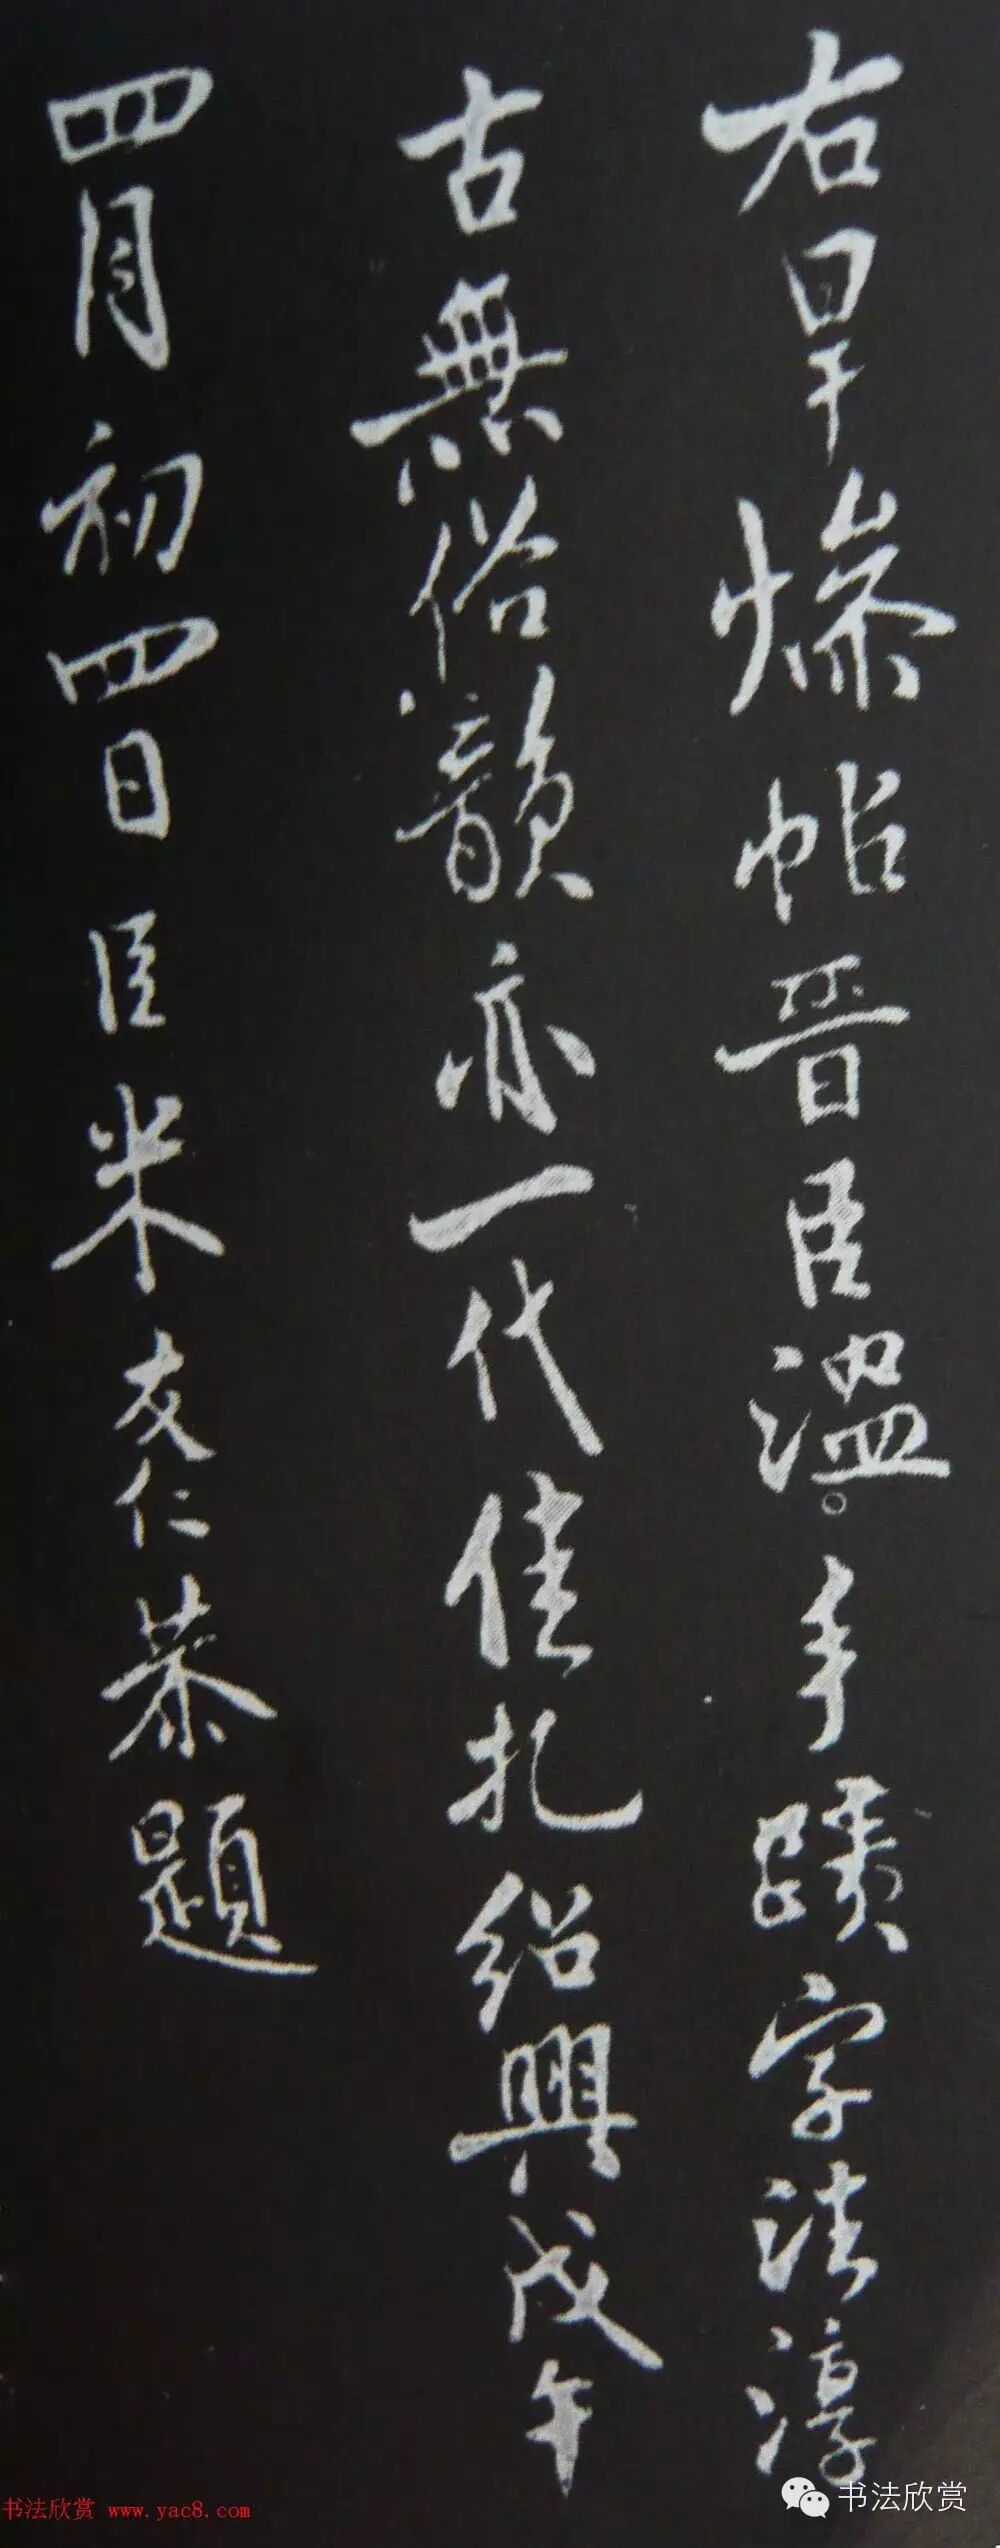 右旱燥帖晋臣温手蹟字法淳
古無俗韻亦一代佳札紹興戊午
四月初四日臣米友仁恭題
书法欣赏 www.yac8.com
书法欣赏